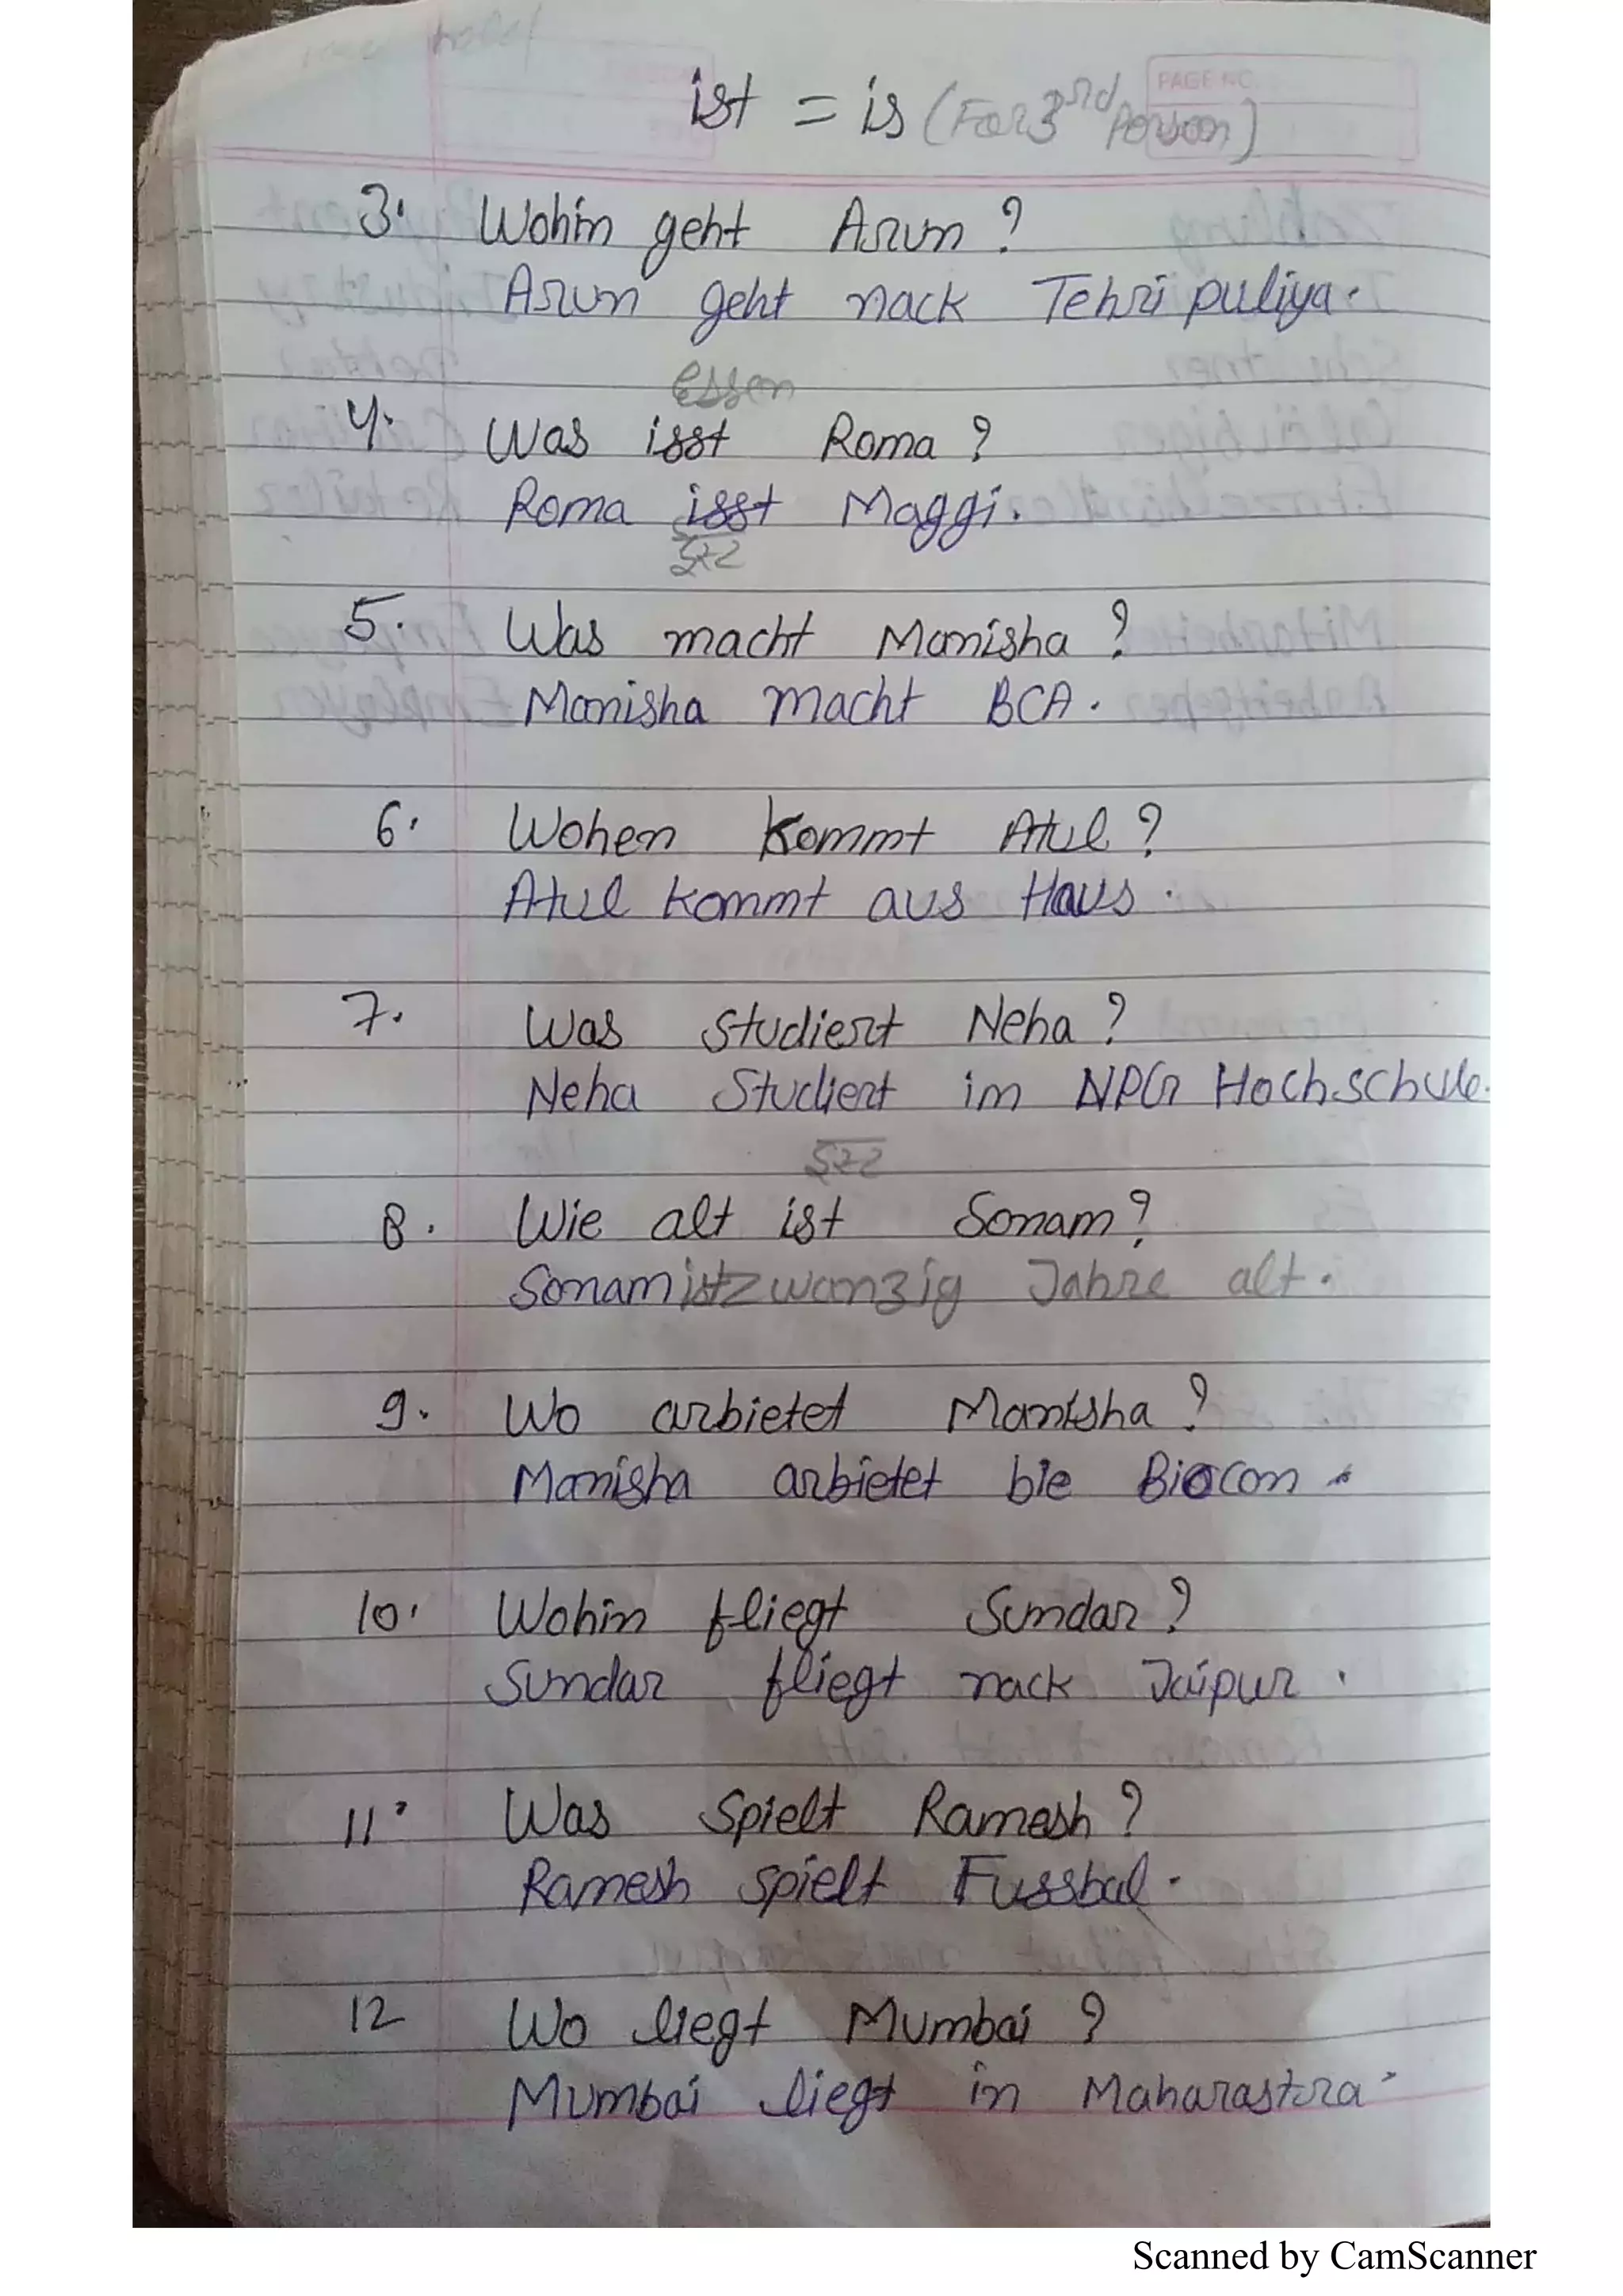 ist = is (For 3rd Person)
PAGE NO.
3. Wohin geht Arun?
Arun geht nack Tehri puliya.
essen
4. Was isst Roma?
Roma isst Maggi.
5. Was macht Manisha?
Manisha macht BCA.
6. Wohen kommt Atul?
Atul kommt aus Haus.
7. Was studiert Neha?
Neha Studiert im NPG Hochschule.
8. Wie alt ist Sonam?
Sonam ist zwanzig Jahre alt.
9. Wo arbietet Manisha?
Manisha arbietet bie Biocon.
10. Wohin fliegt Sundar?
Sundar fliegt nack Jaipur.
11. Was spielt Ramesh?
Ramesh spielt Fussbal.
12 Wo liegt Mumbai?
Mumbai liegt in Maharastra.
Scanned by CamScanner